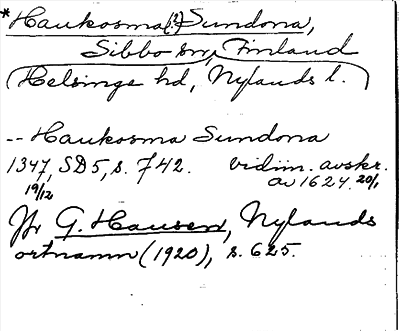 *Haukosma(?) Sundona,
Sibbo sn, Finland
(Helsinge hd, Nylands l.)
-- Haukosma Sundona
1347, SD5, s. 742. vidim. avskr.
19/12 av 1624 20/1
Jfr G. Hausen, Nylands
ortnamn (1920), s. 625.